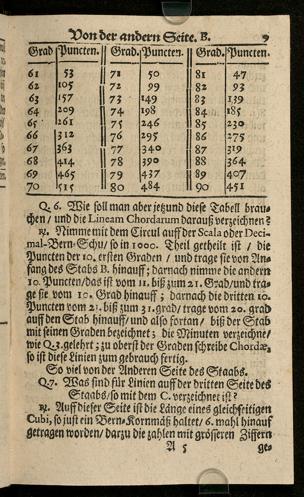 Von der andern Seite. B. 9
Grad Puncten. Grad. Puncten. Grad. Puncten.
61 53 71 50 81 47
62 105 72 99 82 93
63 157 73 149 83 139
64 209 74 198 84 185
65 261 75 246 85 230
66 312 76 295 86 275
67 363 77 340 87 319
68 414 78 390 88 364
69 465 79 437 89 407
70 515 80 484 90 451
Q. 6. Wie soll man aber jezund diese Tabell brau-
chen/ und die Lineam Chordarum darauß verzeichnen?
℞. Nimme mit dem Circul auff der Scala oder Deci-
mal-Bern-Schu/ so in 1000. Theil getheilt ist / die
Puncten der 10. ersten Graden / und trage sie von An-
fang des Stabs B. hinauff; darnach nimme die andern
10. Puncten/ das ist vom 11. biß zum 21. Grad/ und tra-
ge sie vom 10. Grad hinauff ; darnach die dritten 10.
Puncten vom 21. biß zum 31. grad/ trage vom 20. grad
auff den Stab hinauff/ und also fortan / biß der Stab
mit seinen Graden bezeichnet ; die Minuten verzeichne/
wie Q. 3. gelehrt ; zu oberst der Graden schreibe Chordæ,
so ist diese Linien zum gebrauch fertig.
So viel von der Anderen Seite des Staabs.
Q. 7. Was sind für Linien auff der dritten Seite des
Staabs/ so mit dem C. verzeichnet ist?
℞. Auff dieser Seite ist die Länge eines gleichseitigen
Cubi, so just ein Bern-Kornmäß haltet/ 6. mahl hinauf
getragen worden/ darzu die zahlen mit grösseren Ziffern
A 5 ge-